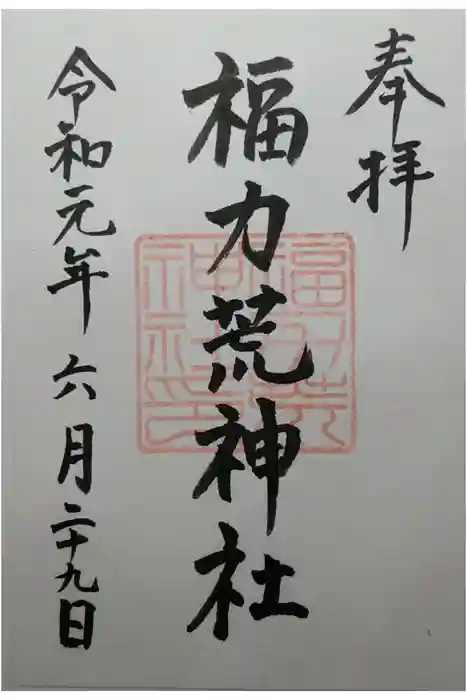 奉拝
福力荒神社
福力荒
神社印
令和元年六月二十九日